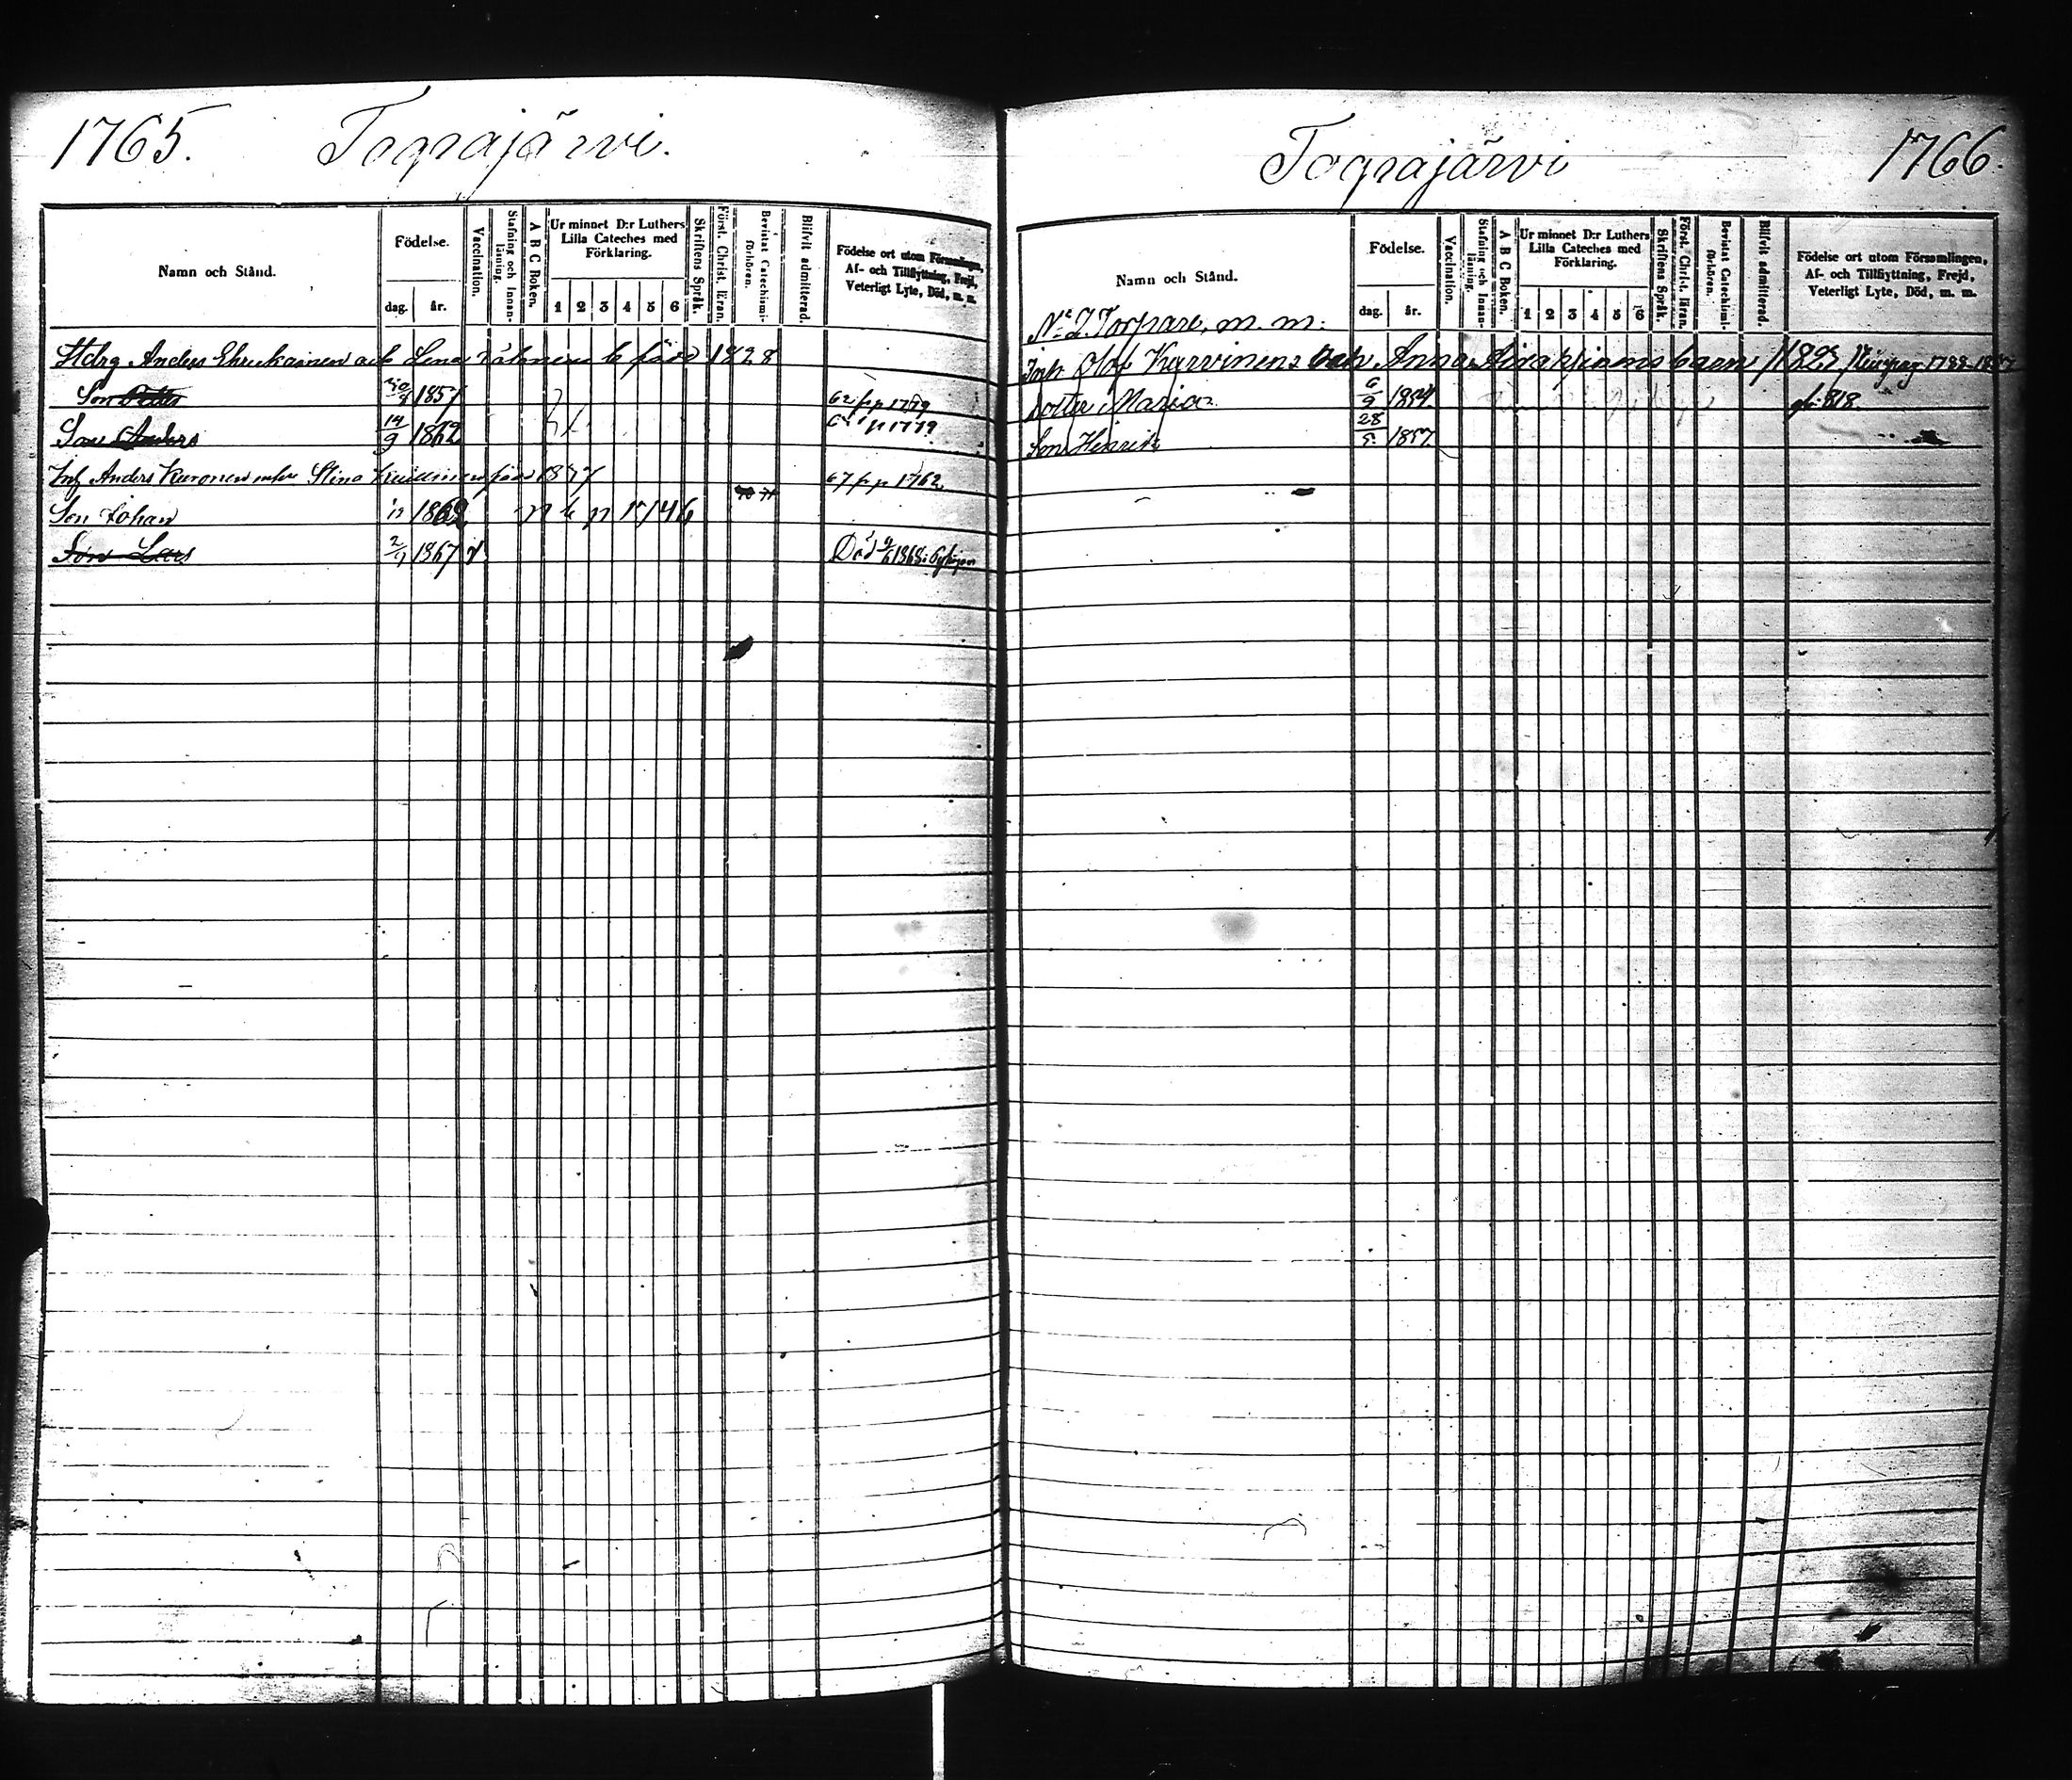 1765. Tograjärvi.
Namn och Stånd.
Födelse.
dag. år.
Vaccination.
Stafning och Innanläsning.
A B C Boken.
Ur minnet D:r Luthers Lilla Cateches med Förklaring.
1 2 3 4 5 6
Skriftens Språk.
Först. Christ. läran.
Bevistat Catechismiförhören.
Blifvit admitterad.
Födelse ort utom Församlingen, Af- och Tillflyttning, Frejd, Veterligt Lyte, Död, m. m.
Anders och Lena född 1828
Son 1857 62 p p 1779
Son Anders 14/9 1862 p 1779
Anders Kuronen Stina född 67 p p 1762
Son Johan 1862
Son Lars 2/1 1867 Död 1868
Tograjärvi 1766.
Namn och Stånd.
Födelse.
dag. år.
Vaccination.
Stafning och Innanläsning.
A B C Boken.
Ur minnet D:r Luthers Lilla Cateches med Förklaring.
1 2 3 4 5 6
Skriftens Språk.
Först. Christ. läran.
Bevistat Catechismiförhören.
Blifvit admitterad.
Födelse ort utom Församlingen, Af- och Tillflyttning, Frejd, Veterligt Lyte, Död, m. m.
Torpare, m. m.
Olof Karvinens och Anna barn
Dotter Maria 6/9 1854 818.
Son Henrik 28/5 1857